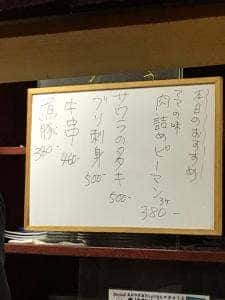 本日のおすすめ
アテの味
肉詰めピーマン 3ケ 380-
サワラのタタキ 500-
ブリ刺身 500-
牛串 460-